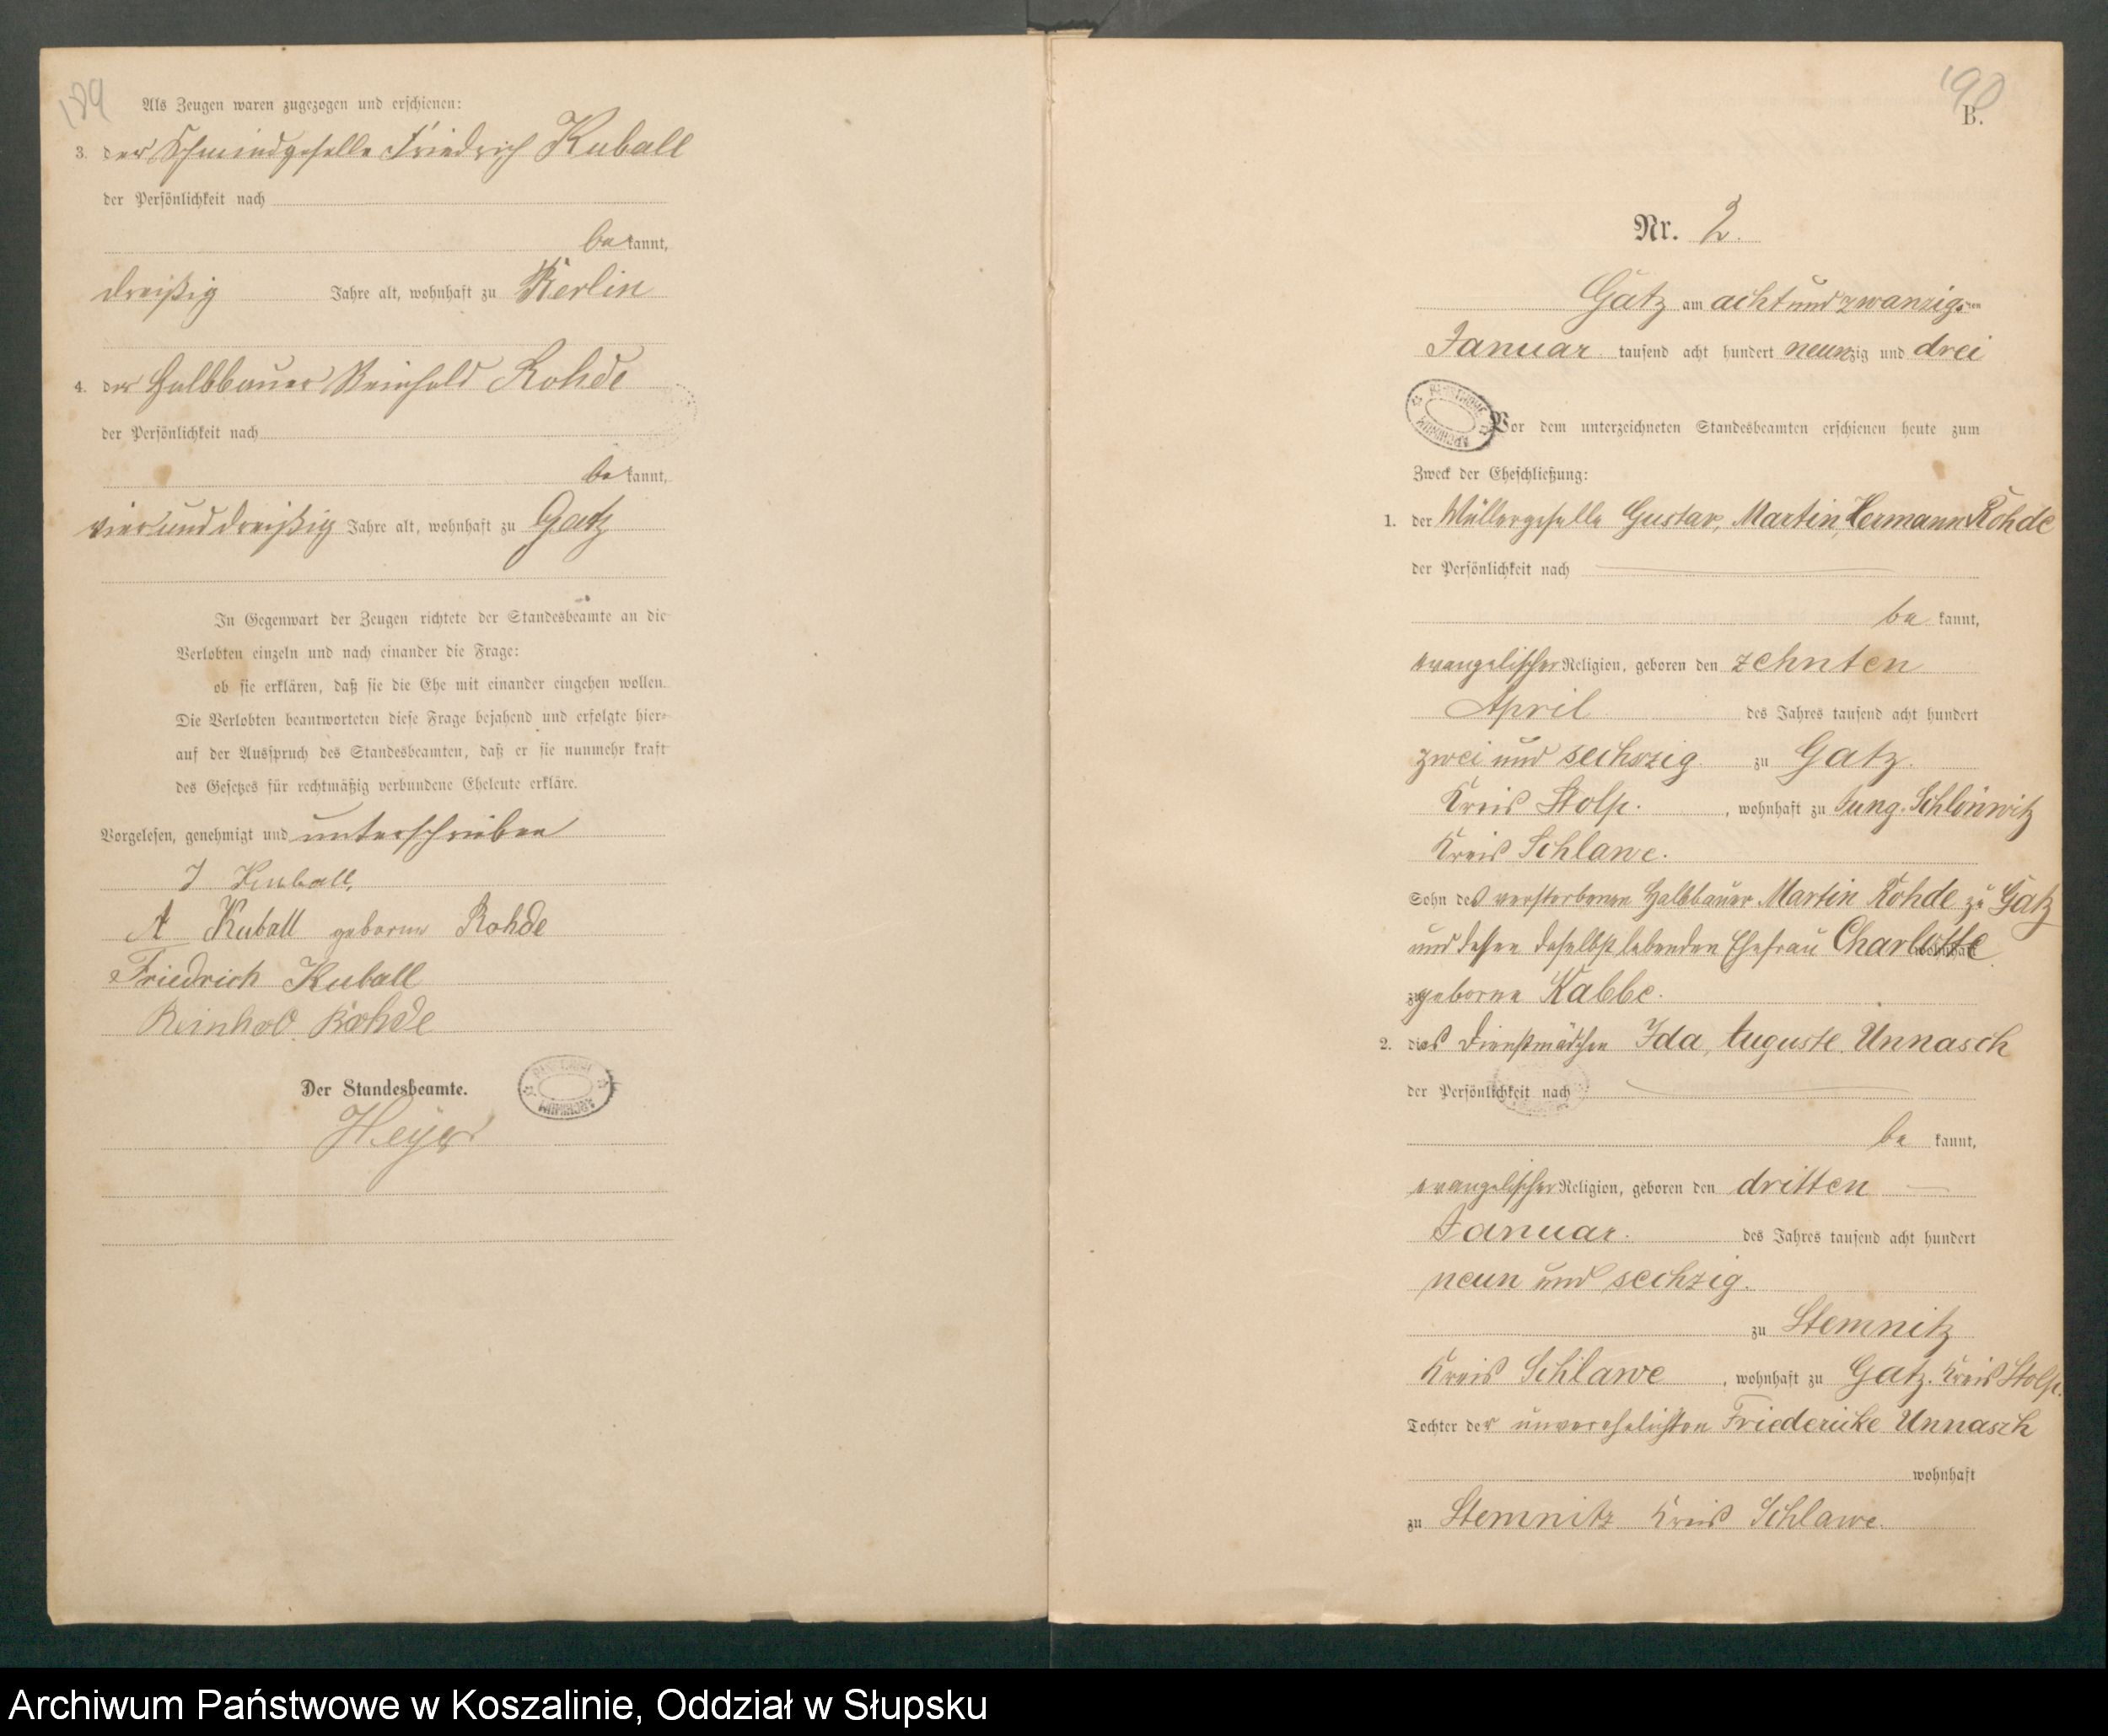 189
Als Zeugen waren zugezogen und erschienen:
3. der Schmiedgeselle Friedrich Kuball
der Persönlichkeit nach
be kannt,
dreißig Jahre alt, wohnhaft zu Berlin
4. der Halbbauer Reinhold Rohde
der Persönlichkeit nach
be kannt,
vierunddreißig Jahre alt, wohnhaft zu Gatz
In Gegenwart der Zeugen richtete der Standesbeamte an die
Verlobten einzeln und nach einander die Frage:
ob sie erklären, daß sie die Ehe mit einander eingehen wollen.
Die Verlobten beantworteten diese Frage bejahend und erfolgte hier-
auf der Ausspruch des Standesbeamten, daß er sie nunmehr kraft
des Gesetzes für rechtmäßig verbundene Eheleute erkläre.
Vorgelesen, genehmigt und unterschrieben
J Kuball,
A Kuball geborne Rohde
Friedrich Kuball
Reinhold Rohde
Der Standesbeamte.
Heyer
190
B.
Nr. 2.
Gatz am achtundzwanzigsten
Januar tausend acht hundert neunzig und drei
Vor dem unterzeichneten Standesbeamten erschienen heute zum
Zweck der Eheschließung:
1. der Müllergeselle Gustav, Martin, Hermann Rohde
der Persönlichkeit nach
be kannt,
evangelischer Religion, geboren den zehnten
April des Jahres tausend acht hundert
zwei und sechszig zu Gatz.
Kreis Stolp. , wohnhaft zu Jung. Schlönwitz
Kreis Schlawe.
Sohn des verstorbenen Halbbauer Martin Rohde zu Gatz
und dessen daselbst lebenden Ehefrau Charlotte wohnhaft
zu geborne Kabbe.
2. das Dienstmädchen Ida, Auguste Unnasch
der Persönlichkeit nach
be kannt,
evangelischer Religion, geboren den dritten
Januar. des Jahres tausend acht hundert
neun und sechzig.
zu Stemnitz
Kreis Schlawe , wohnhaft zu Gatz. Kreis Stolp.
Tochter der unverehelichten Friedericke Unnasch
wohnhaft
zu Stemnitz Kreis Schlawe.
Archiwum Państwowe w Koszalinie, Oddział w Słupsku